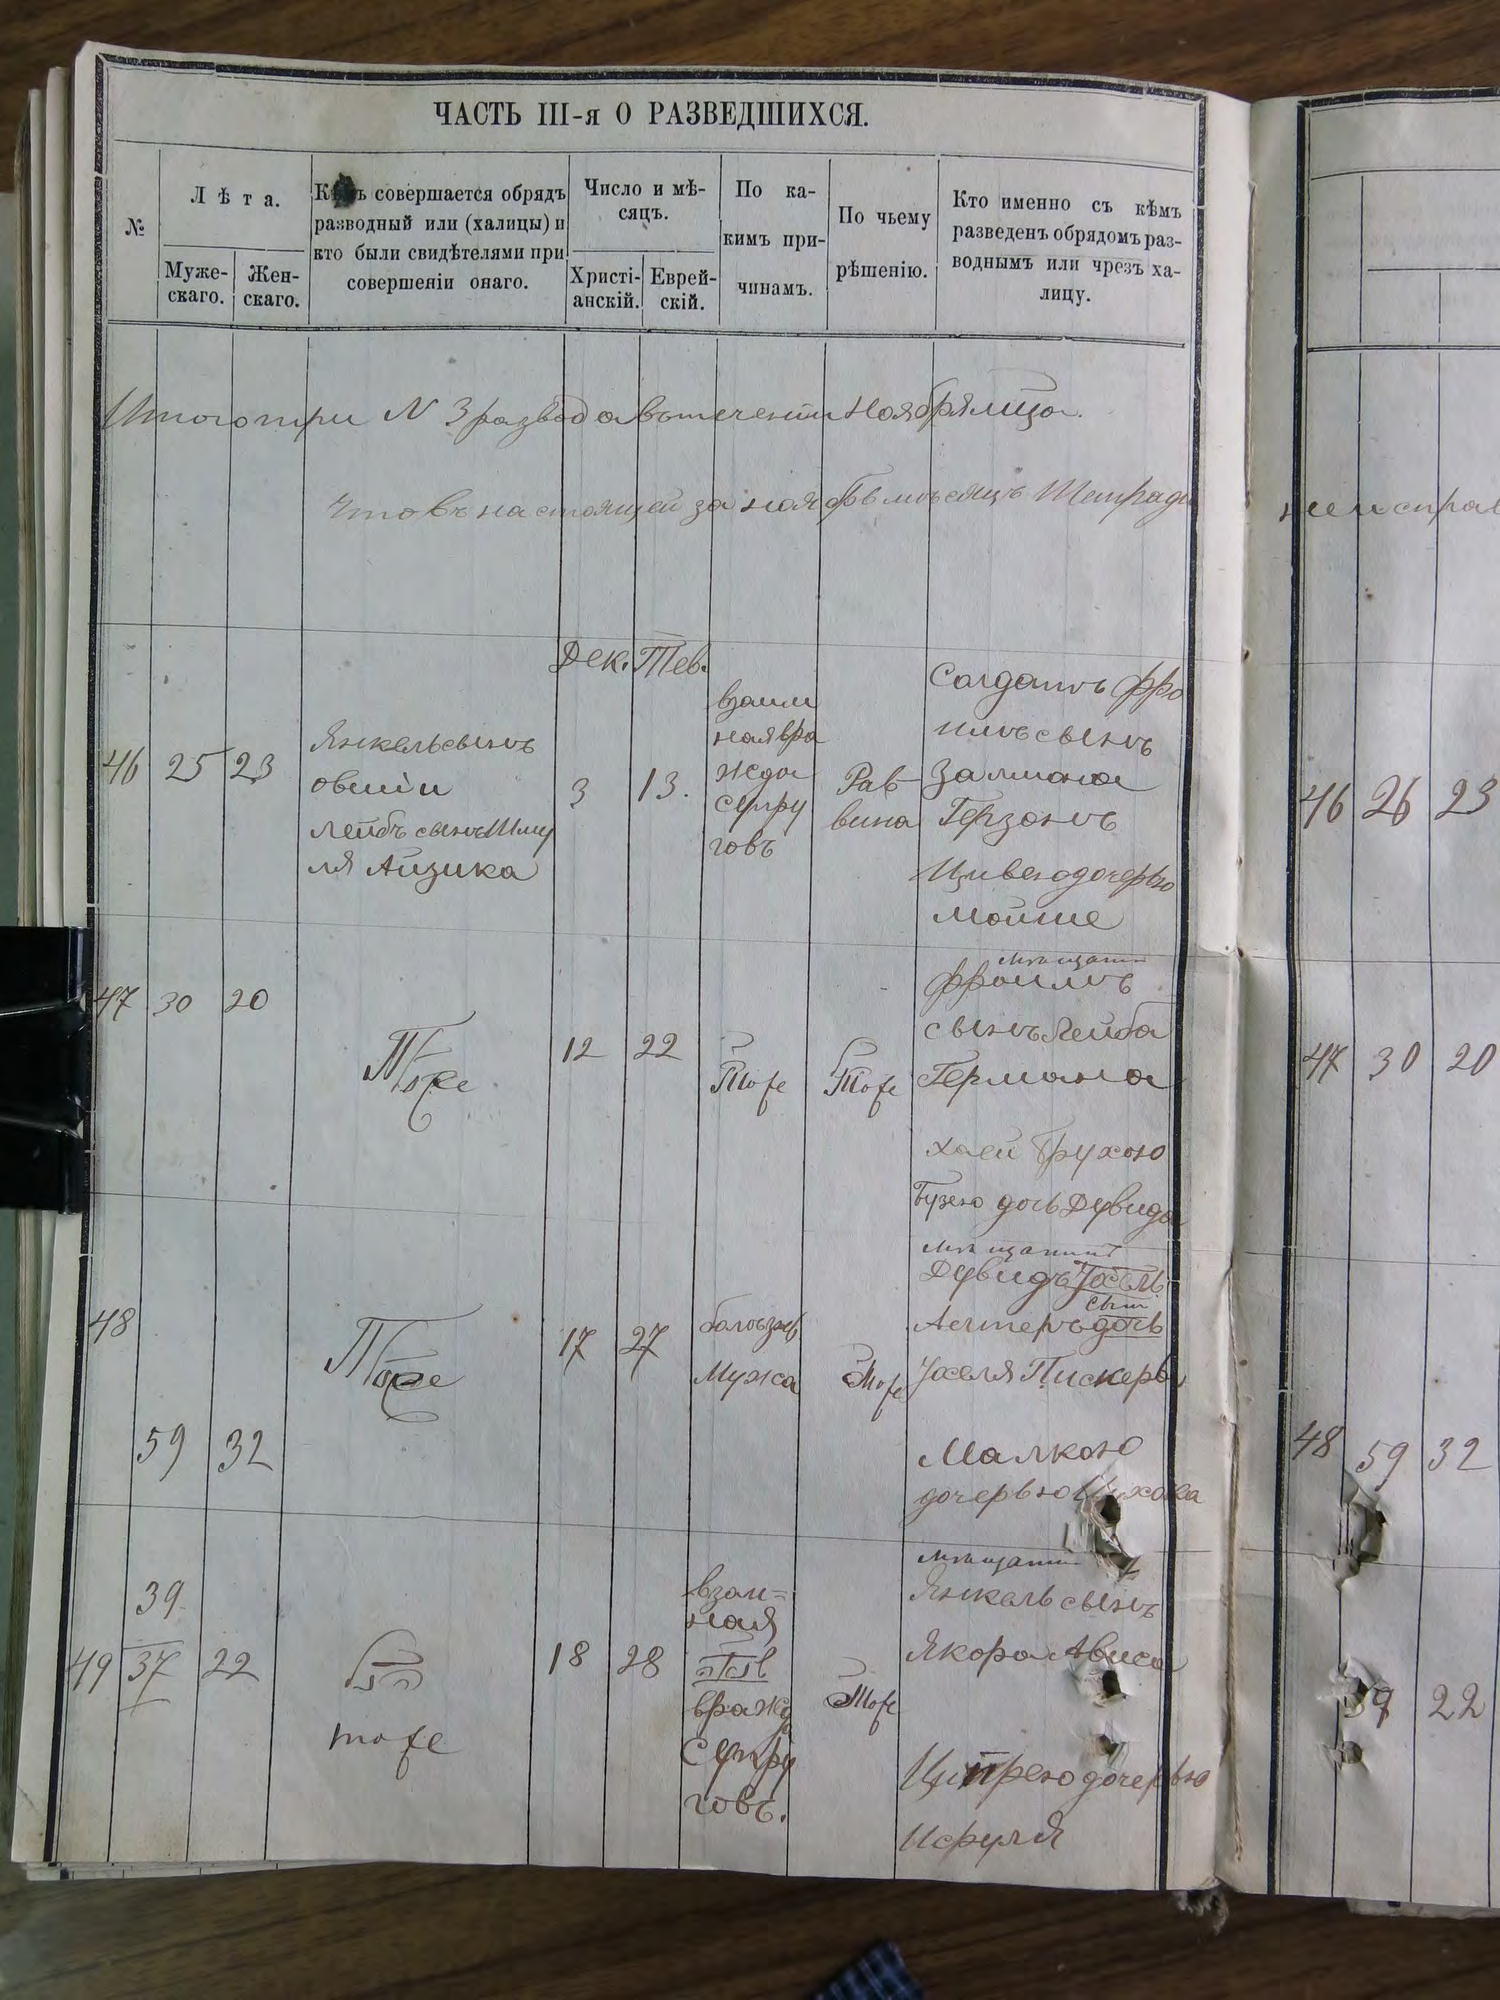 ЧАСТЬ III-я О РАЗВЕДШИХСЯ.
№
Лѣта.
Муже-
скаго.
Жен-
скаго.
Кѣмъ совершается обрядъ
разводный или (халицы) и
кто были свидѣтелями при
совершеніи онаго.
Число и мѣ-
сяцъ.
Христі-
анскій.
Еврей-
скій.
По ка-
кимъ при-
чинамъ.
По чьему
рѣшенію.
Кто именно съ кѣмъ
разведенъ обрядомъ раз-
воднымъ или чрезъ ха-
лицу.
Итого три N 3 развода въ теченіи Ноября мца.
Что въ настоящей за ноябрь мѣсяцъ
Дек. Тев.
46 25 23
Янкель сынъ
овшіи
Лейбъ сынъ Шму
ля Айзика
3
13.
взаим
ная вра
жда
супру
говъ
Рав
вина
Солдатъ Фро
имъ сынъ
Залмана
Герзонъ
Цивею дочерью
Мойше
47 30 20
Тоже
12 22
Тоже
Тоже
мѣщанин
Фроимъ
сынъ Лейба
Германа
Хаей Брухою
Бузею дочь Дувида
48
59 32
Тоже
17 27
болѣзнь
Мужа
Тоже
мѣщанинъ
Дувидъ Іосель
сын
Лейтеръ дочь
Іоселя Пискеръ
Малкою
дочерью
39
49 37 22
тоже
18 28
взаи=
ная
вражда
супру
говъ.
Тоже
мѣщанин
Янкель сынъ
Якора Ависа
Ципрею дочерью
Исруля
46 26 23
47 30 20
48 59 32
39 22